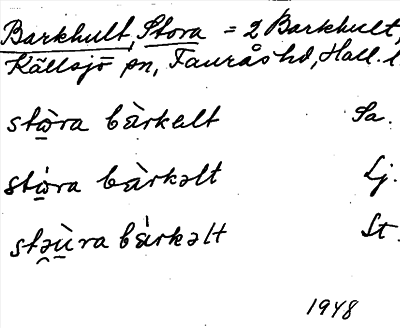 Barkhult, Stora = 2 Barkhult,
Källsjö sn, Faurås hd, Hall. l
stὼ̱ra bàrkelt Sa.
stὼ̱ra bàrkəlt Lj.
stə̯ù̱ra bàrkəlt St.
1948